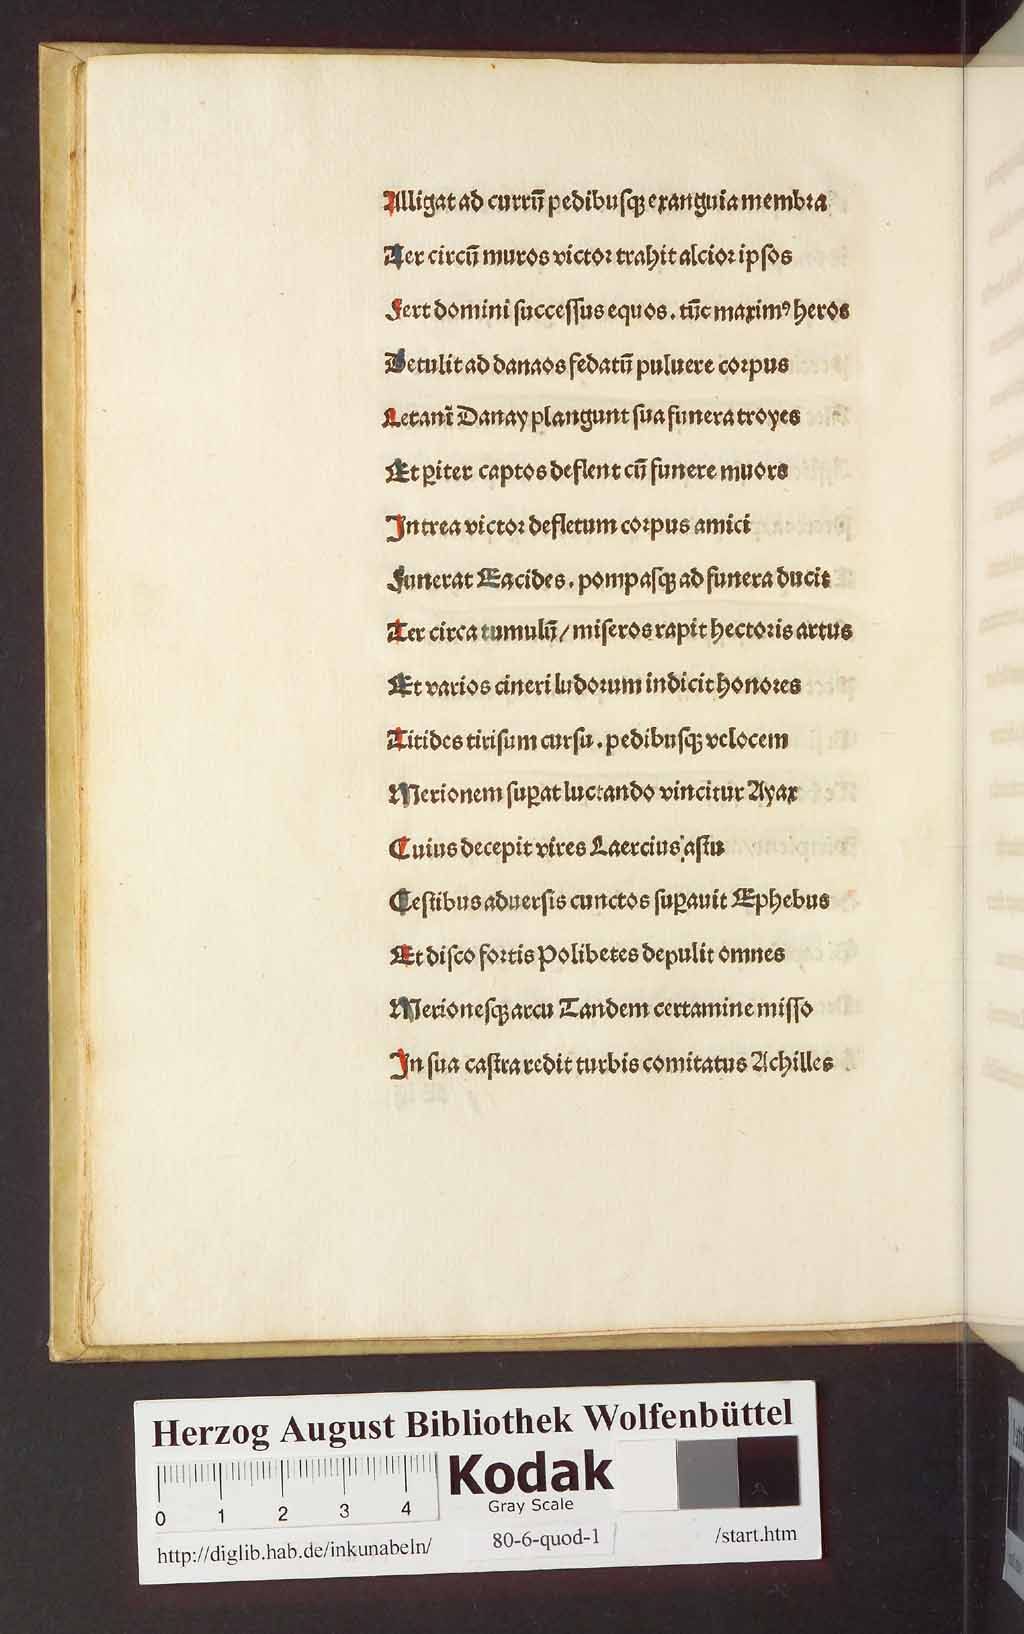 Alligat ad currū pedibusqꝫ exanguia membra
Ter circū muros victor trahit alcior ipsos
Fert domini successus equos . tūc maximꝰ heros
Detulit ad danaos fedatū puluere corpus
Letant᷑ Danay plangunt sua funera troyes
Et ꝑiter captos deflent cū funere muors
Intrea victor defletum corpus amici
Funerat Eacides . pompasqꝫ ad funera ducit
Ter circa tumulū / miseros rapit hectoris artus
Et varios cineri ludorum indicit honores
Titides tirisum cursu . pedibusqꝫ velocem
Merionem suꝑat luctando vincitur Ayax
Cuius decepit vires Laercius astu
Cestibus aduersis cunctos suꝑauit Ephebus
Et disco fortis Polibetes depulit omnes
Merionesqꝫ arcu Tandem certamine misso
In sua castra redit turbis comitatus Achilles
Herzog August Bibliothek Wolfenbüttel
Kodak
Gray Scale
0 1 2 3 4
http://diglib.hab.de/inkunabeln/ 80-6-quod-1 /start.htm